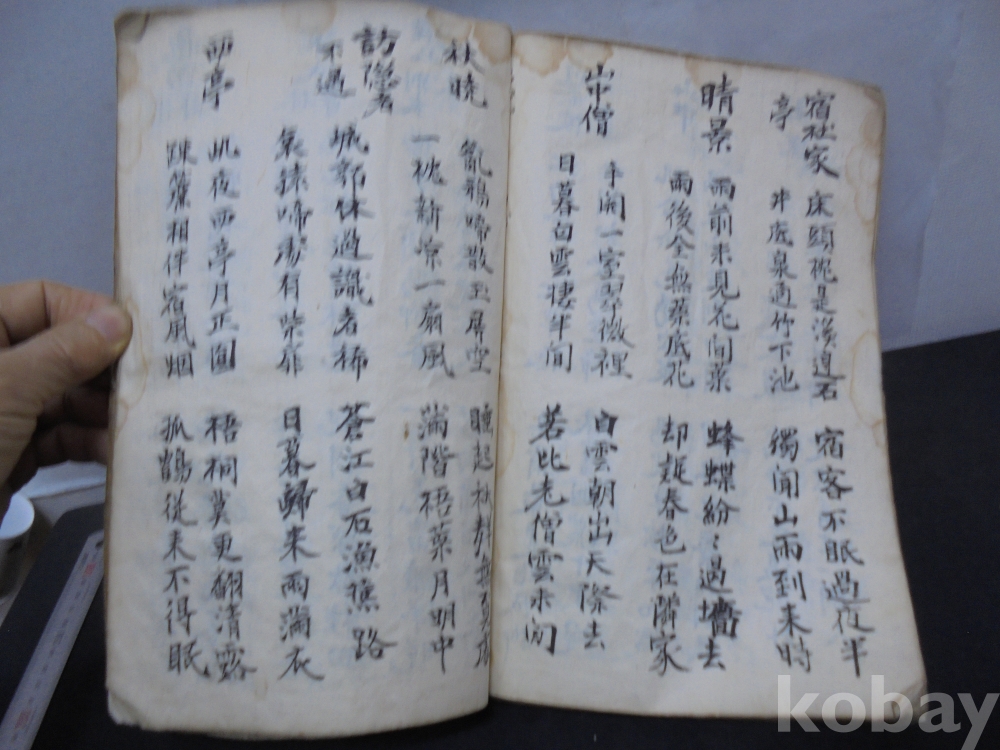 宿杜家 床頭枕是溪邊石 宿客不眠過夜半
亭 井底泉通竹下池 獨聞山雨到來時
晴景 雨前未見花間葉 蜂蝶紛〻過墻去
雨後全無葉底花 却疑春色在隣家
山僧 手開一室翠微裡 白雲朝出天際去
日暮白雲棲半間 若比老僧雲未閒
秋曉 亂鴉啼散玉屏空 睡起秋聲無覓處
一枕新凉一扇風 滿階梧葉月明中
訪隱者 城郭休過識者稀 蒼江白石漁樵路
不遇 哀猿啼處有柴扉 日暮歸來雨滿衣
西亭 此夜西亭月正圓 梧桐莫更翻清露
疎簾相伴宿風烟 孤鶴從來不得眠
kobay